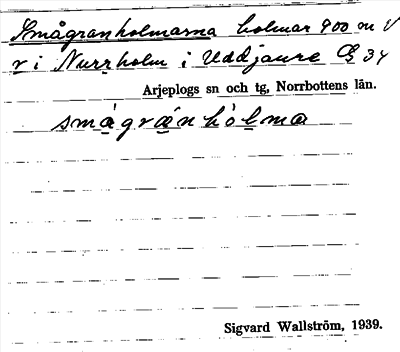 Smågranholmarna holmar 900 m V
v i Nurrholm i Uddjaure G 34
Arjeplogs sn och tg, Norrbottens län.
smågrànhòlma
Sigvard Wallström, 1939.